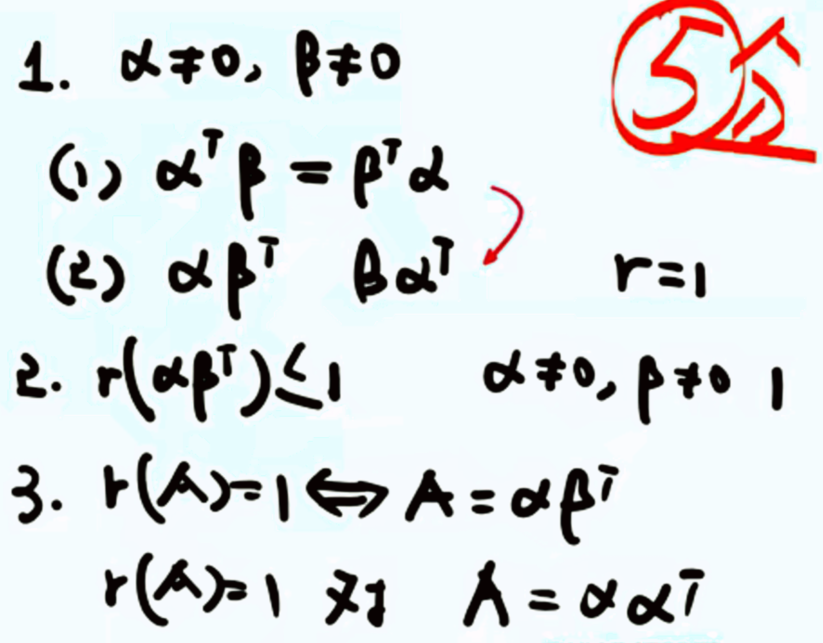 5分
1. α≠0, β≠0
(1) αᵀβ = βᵀα
(2) αβᵀ βαᵀ r=1
2. r(αβᵀ)≤1 α≠0, β≠0 1
3. r(A)=1 ⟺ A=αβᵀ
r(A)=1 对 A=ααᵀ